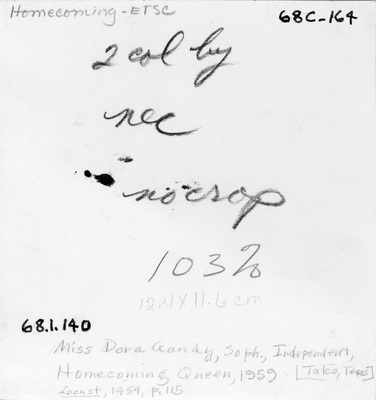 Homecoming - ETSC
68C-164
2 col by
nec
no crop
103%
12.4 X 11.6 cm.
68.1.140
Miss Dora Gandy, Soph., Independent,
Homecoming Queen, 1959 [Talco, Texas]
Locust, 1959, p. 115